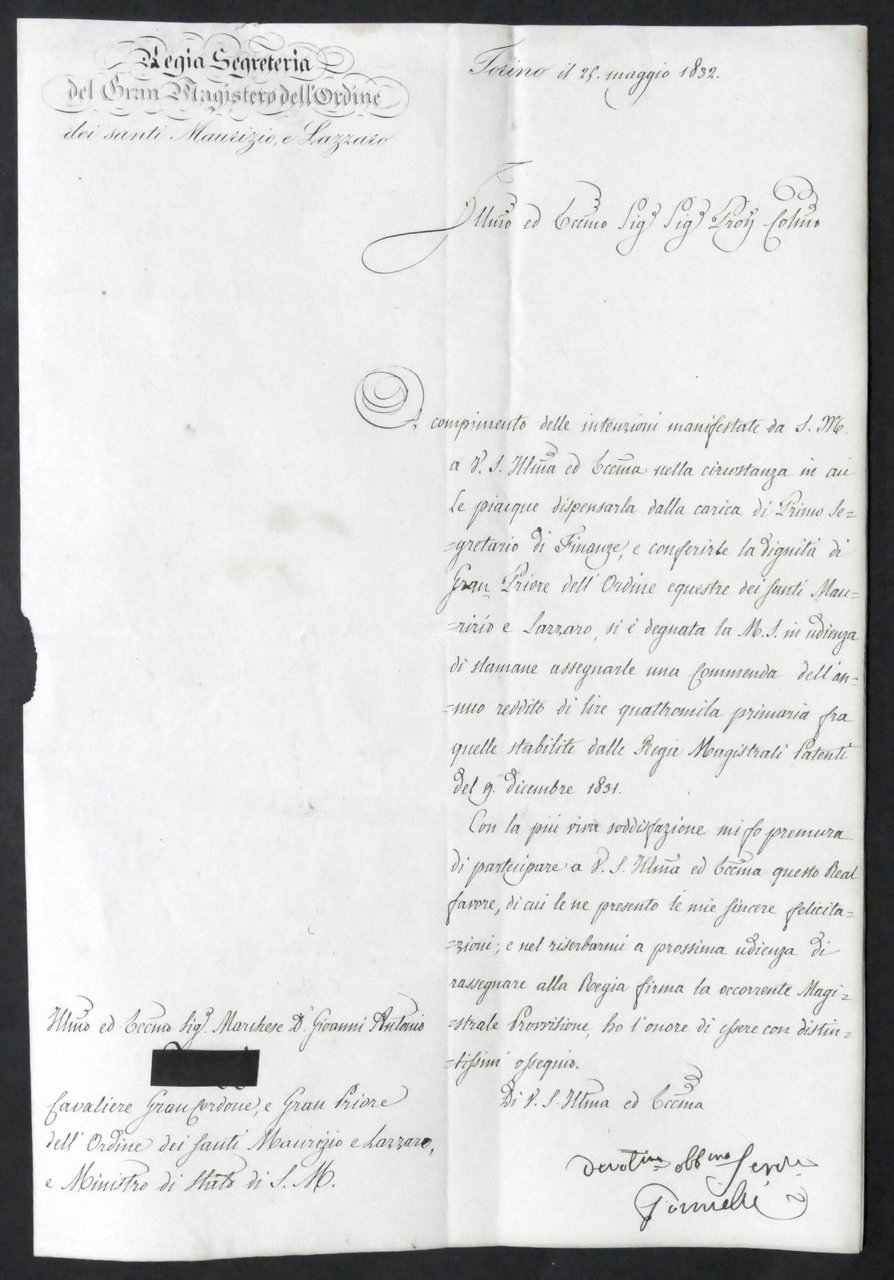 Regia Segreteria
del Gran Magistero dell'Ordine
dei santi Maurizio, e Lazzaro
Torino il 25. maggio 1832.
Illmo ed Eccmo Sigr Sigr Pron Colmo
A compimento delle intenzioni manifestate da S. M.
a V. S. Illma ed Eccma nella circostanza in cui
Le piacque dispensarla dalla carica di Primo Se=
=gretario di Finanze, e conferirle la dignità di
Gran Priore dell'Ordine equestre dei santi Mau=
=rizio e Lazzaro, si è degnata la M. S. in udienza
di stamane assegnarle una Commenda dell'an=
=nuo reddito di lire quattromila primaria fra
quelle stabilite dalle Regie Magistrali Patenti
del 9. dicembre 1831.
Con la più viva soddisfazione mi fo premura
di partecipare a V. S. Illma ed Eccma questo Real
favore, di cui le ne presento le mie sincere felicita=
=zioni; e nel riserbarmi a prossima udienza di
rassegnare alla Regia firma la occorrente Magi=
=strale Provvisione, ho l'onore di essere con distin=
=tissimi ossequio.
Di V. S. Illma ed Eccma
Devotimo obbmo Serve
Illmo ed Eccmo Sigr Marchese D. Giovanni Antonio
Cavaliere Gran Cordone, e Gran Priore
dell'Ordine dei santi Maurizio e Lazzaro,
e Ministro di Stato di S. M.